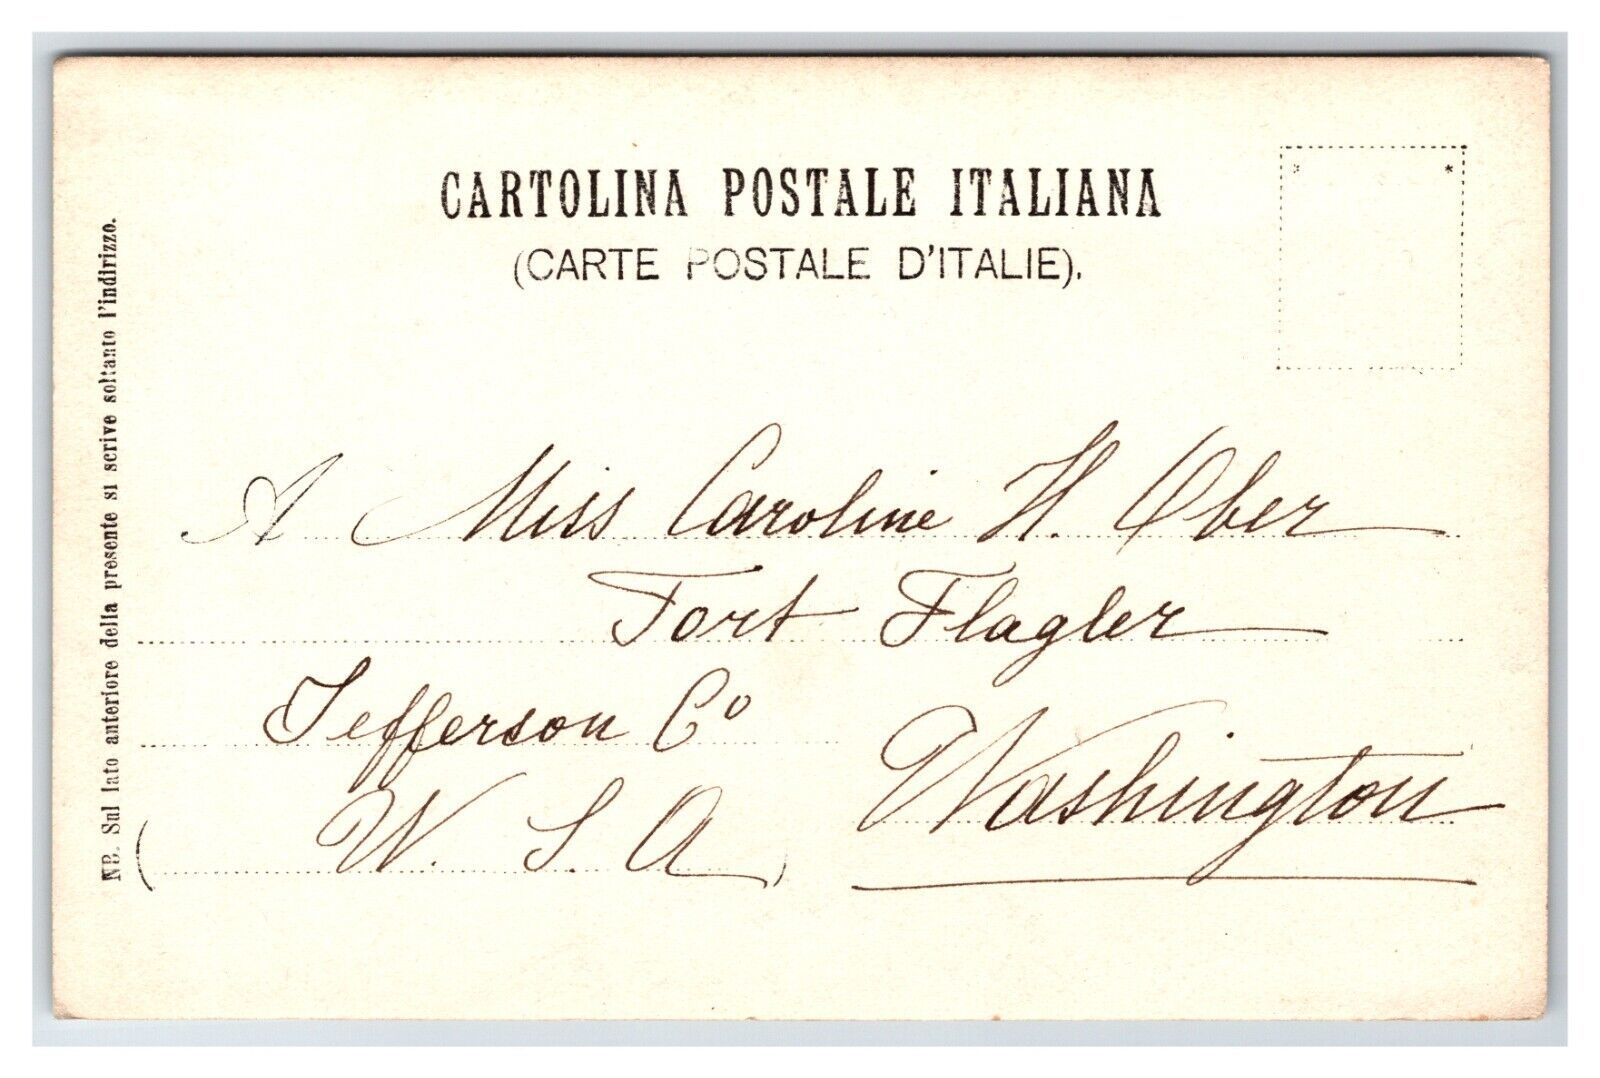 CARTOLINA POSTALE ITALIANA
(CARTE POSTALE D'ITALIE).
NB. Sul lato anteriore della presente si scrive soltanto l'indirizzo.
A Miss Caroline H. Ober
Fort Flagler
Jefferson Co
Washington
(U. S. A.)